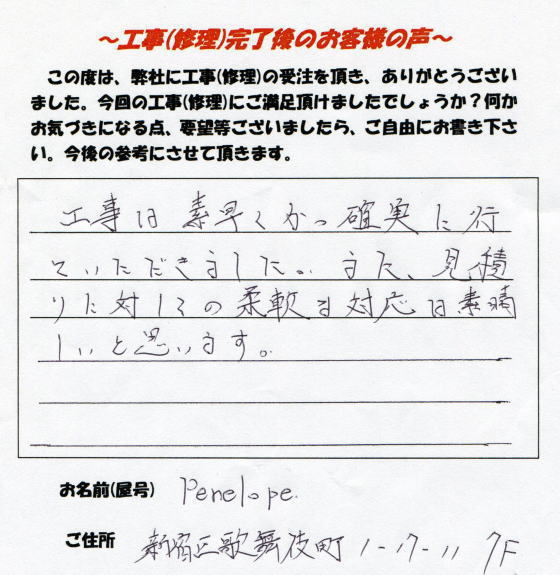 ～工事(修理)完了後のお客様の声～
この度は、弊社に工事(修理)の受注を頂き、ありがとうござい
ました。今回の工事(修理)にご満足頂けましたでしょうか？何か
お気づきになる点、要望等ございましたら、ご自由にお書き下さ
い。今後の参考にさせて頂きます。
工事は素早くかつ確実に行
ていただきました。また、見積
りに対しての柔軟な対応は素晴
しいと思います。
お名前(屋号) Penelope.
ご住所 新宿区歌舞伎町 1-17-11 7F